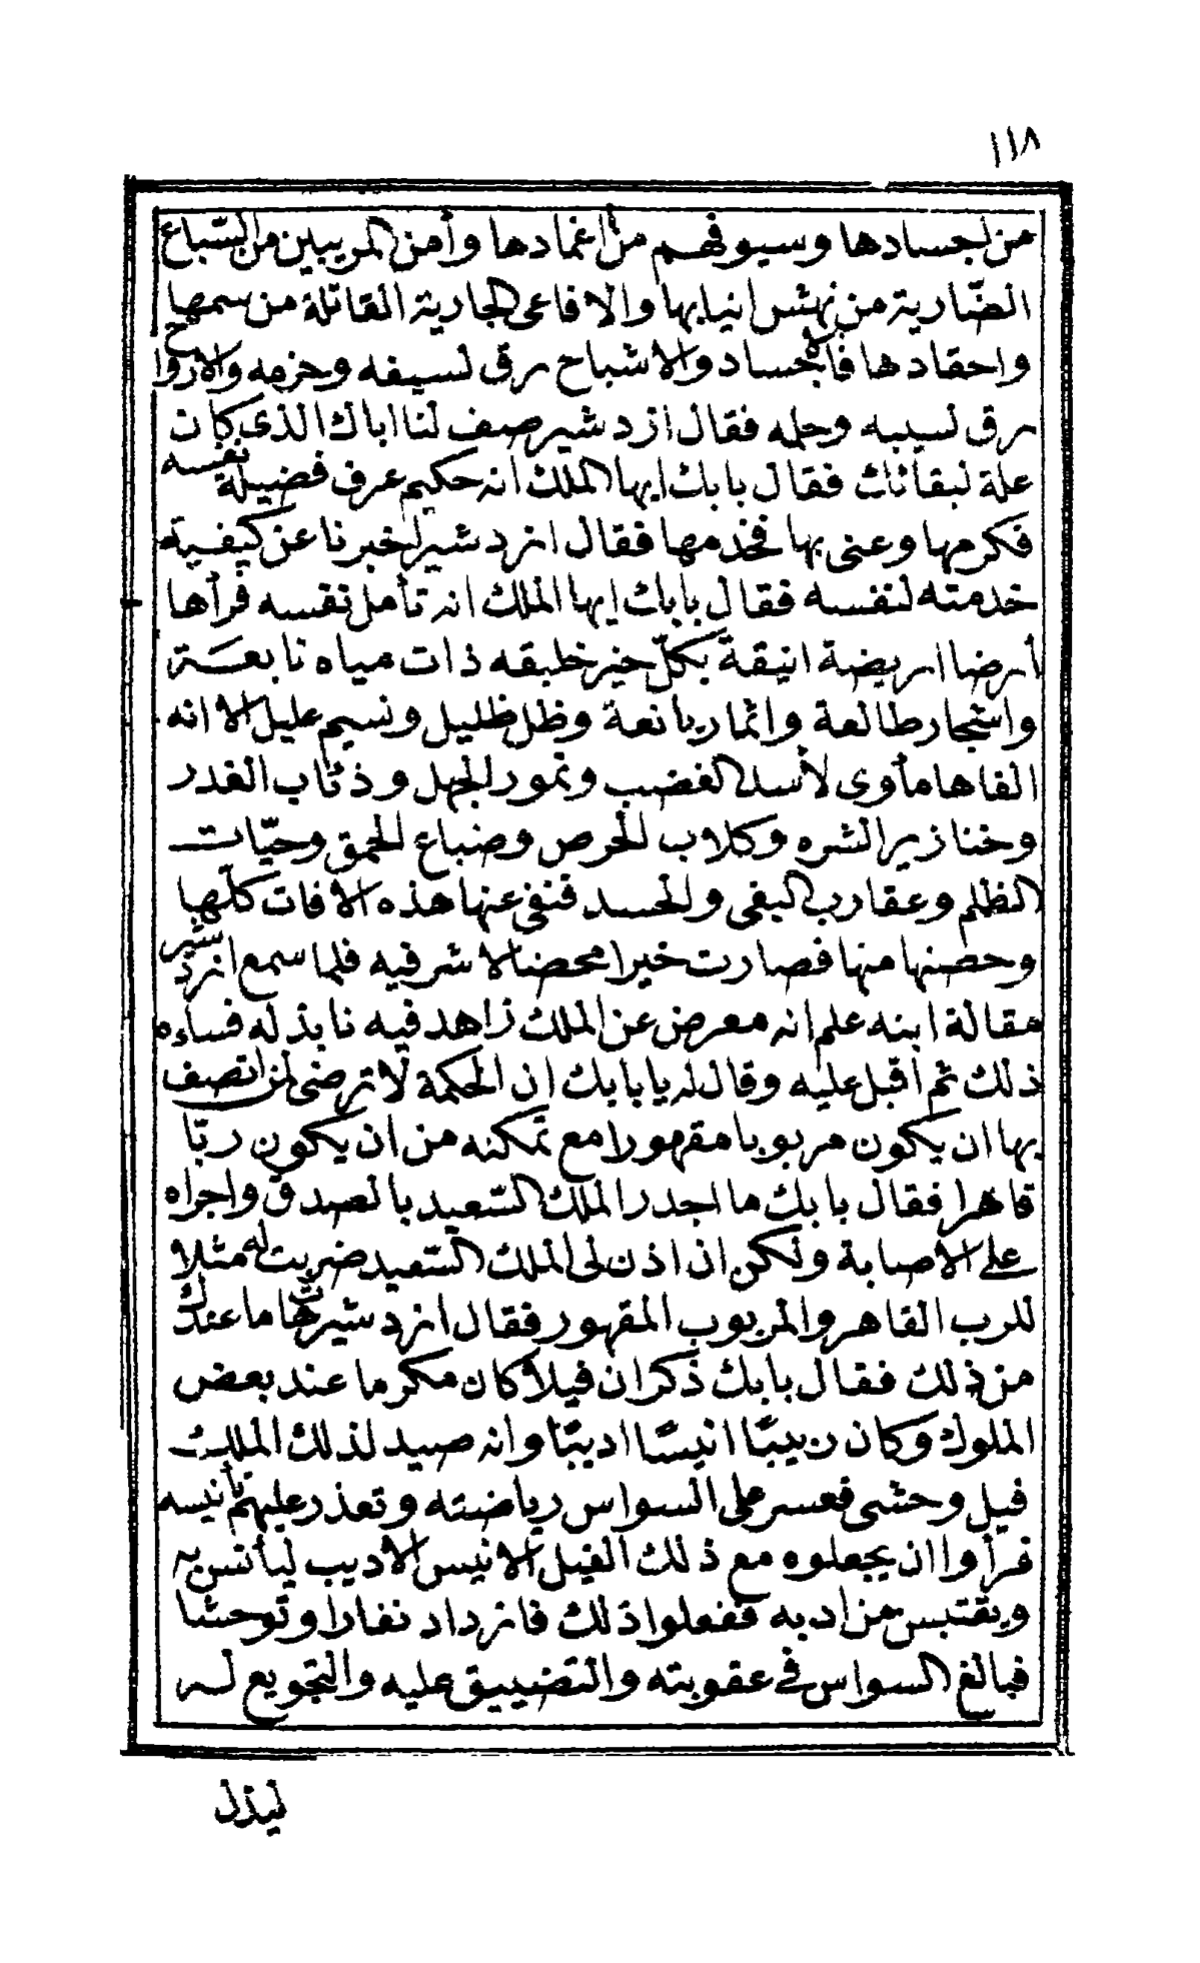 ١١٨
من اجسادها وسيوفهم من اغمادها وأمن المريبين من السّباع
الضّارية من نهش انيابها والافاعى الجارية القاتلة من سمها
واحقادها فالاجساد والاشباح رق لسيفه وحزمه والارواح
رق لسيبه وحلمه فقال ازدشير صف لنا اباك الذى كان
علة لبقائك فقال بابك ايها الملك انه حكيم عرف فضيلة نفسه
فكرمها وعنى بها فخدمها فقال ازدشير اخبرنا عن كيفية
خدمته لنفسه فقال بابك ايها الملك انه تأمل نفسه فرأها
أرضا اريضة انيقة بكلّ خير خليقه ذات مياه نابعة
واشجار طالعة واثمار يانعة وظل ظليل ونسيم عليل الا انه
الفاها مأوى لأسد الغضب ونمور الجهل وذئاب الغدر
وخنازير الشره وكلاب الحرص وضباع الحمق وحيّات
الظلم وعقارب البغى والحسد فنفى عنها هذه الافات كلّها
وحصنها منها فصارت خيرا محضا لا شر فيه فلما سمع ازدشير
مقالة ابنه علم انه معرض عن الملك زاهد فيه نابذ له فساءه
ذلك ثم أقبل عليه وقال له يا بابك ان الحكمة لا ترضى لمن اتصف
بها ان يكون مربوبا مقهورا مع تمكنه من ان يكون ربّا
قاهرا فقال بابك ما اجدر الملك السّعيد بالصدق واجراه
على الاصابة ولكن ان اذن لى الملك السّعيد ضربت له مثلا
للرب القاهر والمربوب المقهور فقال ازدشير هات ما عندك
من ذلك فقال بابك ذكر ان فيلا كان مكرما عند بعض
الملوك وكان ربيبًا انيسًا اديبًا وانه صيد لذلك الملك
فيل وحشى فعسر على السواس رياضته وتعذر عليهم تأنيسه
فرأوا ان يجعلوه مع ذلك الفيل الانيس الاديب ليأنس به
ويقتبس من ادبه ففعلوا ذلك فازداد نفارا وتوحشا
فبالغ السواس فى عقوبته والتضييق عليه والتجويع له
ليذل